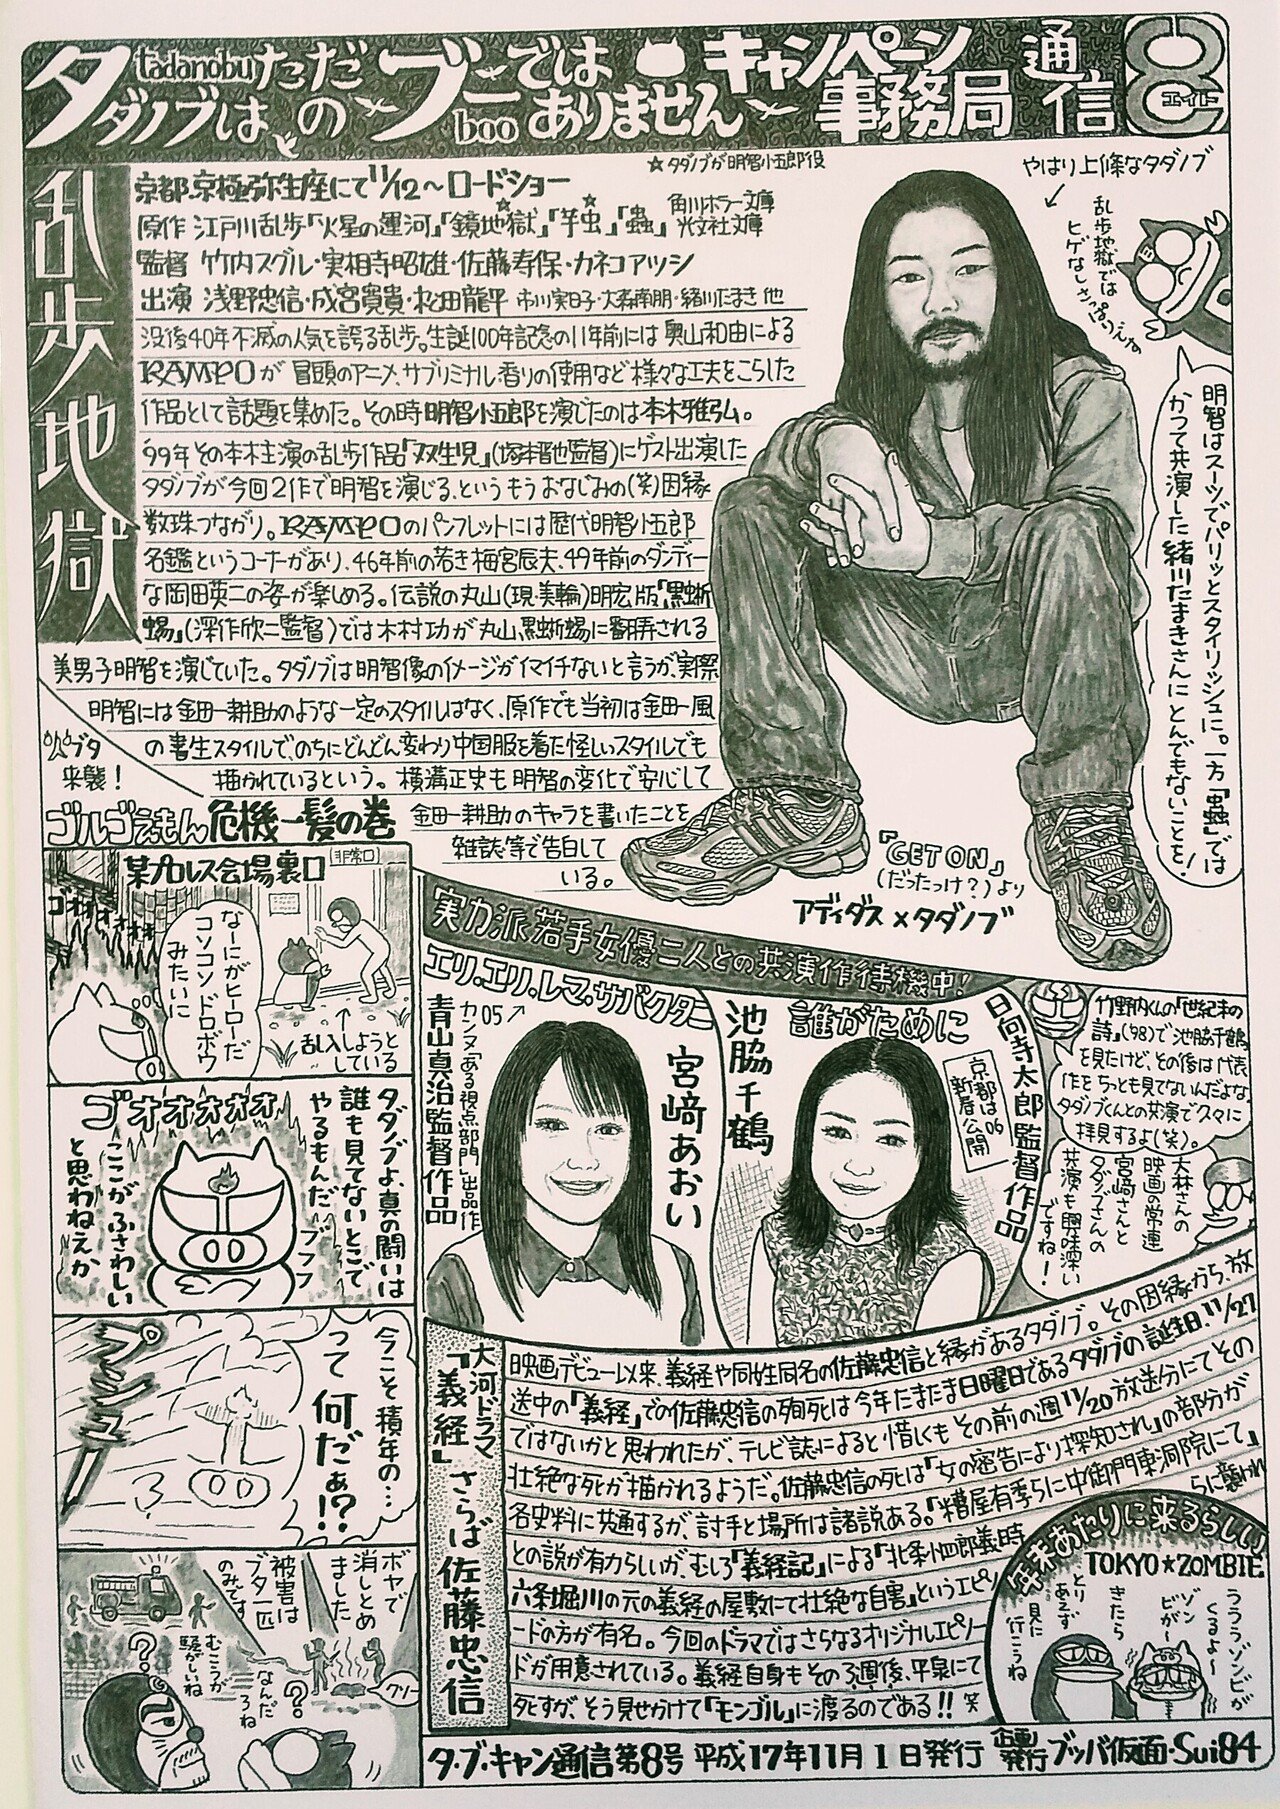 タダノブは、ただのブーではありませんキャンペーン事務局通信
tadanobu
boo
8
エイト
乱歩地獄
京都、京極弥生座にて11/12〜ロードショー
★タダノブが明智小五郎役
原作 江戸川乱歩「火星の運河」「鏡地獄」「芋虫」「蟲」角川ホラー文庫 光文社文庫
監督 竹内スグル・実相寺昭雄・佐藤寿保・カネコアツシ
出演 浅野忠信・成宮寛貴・松田龍平 市川実日子・大森南朋・緒川たまき 他
没後40年不滅の人気を誇る乱歩。生誕100年記念の11年前には奥山和由による
RAMPOが冒頭のアニメ、サブリミナル、香りの使用など様々な工夫をこらした
作品として話題を集めた。その時明智小五郎を演じたのは本木雅弘。
'99年その本木主演の乱歩作品「双生児」(塚本晋也監督)にゲスト出演した
タダノブが今回2作で明智を演じる、というもうおなじみの(笑)因縁
数珠つながり。RAMPOのパンフレットには歴代明智小五郎
名鑑というコーナーがあり、46年前の若き梅宮辰夫、49年前のダンディー
な岡田英二の姿が楽しめる。伝説の丸山(現・美輪)明宏版「黒蜥
蜴」(深作欣二監督)では木村功が丸山、黒蜥蜴に翻弄される
美男子明智を演じていた。タダノブは明智像のイメージがイマイチないと言うが、実際
明智には金田一耕助のような一定のスタイルはなく、原作でも当初は金田一風
の書生スタイルで、のちにどんどん変わり中国服を着た怪しいスタイルでも
描かれているという。横溝正史も明智の変化で安心して
金田一耕助のキャラを書いたことを
雑誌等で告白して
いる。
やはり上條なタダノブ
乱歩地獄では
ヒゲなしさっぱりえなの
明智はスーツでパリッとスタイリッシュに。一方「蟲」では
かつて共演した緒川たまきさんにとんでもないことを!
「GET ON」
(だったっけ?)より
アディダス×タダノブ
ブタ
来襲!
ゴルゴえもん 危機一髪の巻
某プロレス会場裏口
非常口
ゴオオオオオ
なーにがヒーローだ
コソコソドロボウ
みたいに
乱入しようと
している
ゴオオオオオ
タダブよ、真の闘いは
誰も見てないとこで
やるもんだ ブフフ
ここがふさわしい
と思わねえか
今こそ積年の…
って何だぁ!?
プシュー
ボヤで
消しとめ
ました
被害は
ブタ一匹
のみです
むこうが
騒がしいね
なんだ
ろね
実力派若手女優二人との共演作待機中!
エリ・エリ・レマ・サバクタニ
カンヌ05「ある視点部門」出品作
青山真治監督作品
宮﨑あおい
誰がために
池脇千鶴
日向寺太郎監督作品
京都は06
新春公開
竹野内くんの「世紀末の
詩」('98)で池脇千鶴
を見たけど、その後は代表
作をちっとも見てないんだよな。
タダノブくんとの共演で久々に
拝見するよ(笑)。
大林さんの
映画の常連
宮﨑さんと
タダノブさんの
共演も興味深い
ですね!
大河ドラマ
「義経」さらば佐藤忠信
映画デビュー以来、義経や同姓同名の佐藤忠信と縁があるタダノブ。その因縁から、放
送中の「義経」での佐藤忠信の殉死は今年たまたま日曜日であるタダノブの誕生日、11/27
ではないかと思われたが、テレビ誌によると惜しくもその前の週11/20放送分にてその
壮絶な死が描かれるようだ。佐藤忠信の死は「女の密告により探知され」の部分が
各史料に共通するが、討手と場所は諸説ある。「糟屋有季らに中御門東洞院にて」
との説が有力らしいが、むしろ「義経記」による「北条小四郎義時らに襲われ
六条堀川の元の義経の屋敷にて壮絶な自害」というエピソ
ードの方が有名。今回のドラマではさらなるオリジナルエピソー
ドが用意されている。義経自身もその3週後、平泉にて
死すが、そう見せかけて「モンゴル」に渡るのである!!笑
年末あたりに来るらしい
TOKYO★ZOMBIE
ラララゾンビが
くるよ〜
ゾン
ビが〜
きたら
とり
あえず
見に
行こうね
タ・ブ・キャン通信第8号 平成17年11月1日発行 企画発行 ブッバ仮面・Sui84